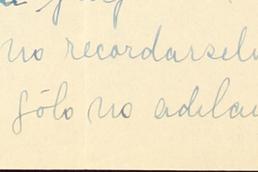 no recordarsel
sólo no adela